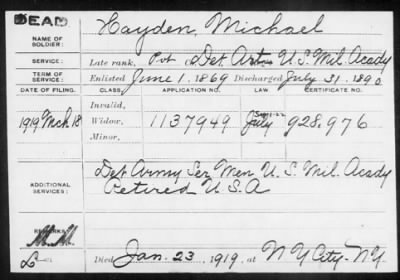 DEAD
Hayden, Michael
NAME OF SOLDIER:
SERVICE: Late rank, Pvt Det Art U.S. Mil. Acady
TERM OF SERVICE: Enlisted June 1, 1869 Discharged July 31, 1890
DATE OF FILING. CLASS. APPLICATION NO. LAW. CERTIFICATE NO.
Invalid,
1919 Mch 18 Widow, 1137949 July 928,976
Minor,
ADDITIONAL SERVICES: Det Army Ser Men U.S. Mil. Acady
Retired U.S.A
REMARKS:
Died Jan. 23, 1919, at N Y City - N.Y.